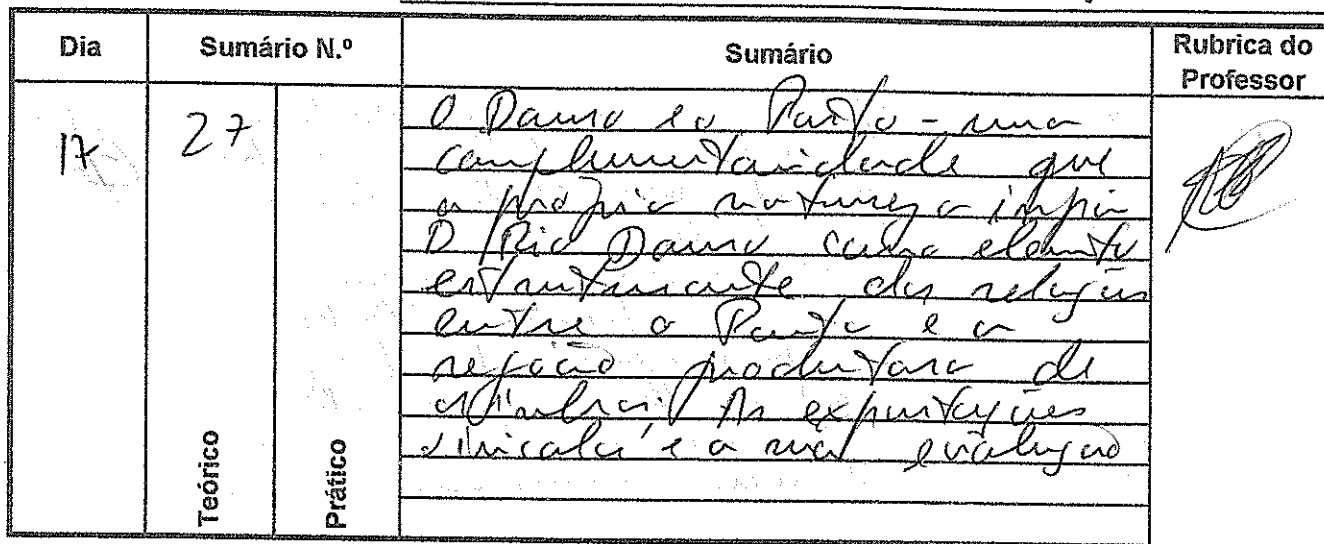 Dia Sumário N.º Sumário Rubrica do Professor
17 27
O Douro e o Porto - uma
complementaridade que
a própria natureza impõe
O Rio Douro como elemento
estruturante das relações
entre o Porto e a
região produtora de
vinhos; As exportações
vinícolas e a sua evolução
Teórico
Prático